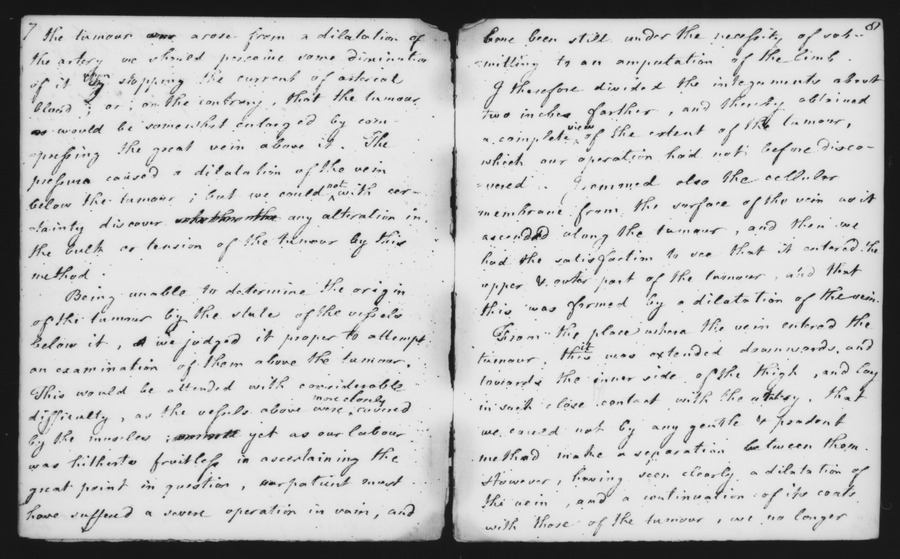 7
the tumour arose from a dilatation of
the artery we should perceive some diminution
of it upon stopping the current of arterial
blood; or; on the contrary, that the tumour
would be somewhat enlarged by com-
-pressing the great vein above it. The
pressure caused a dilatation of the vein
below the tumour; but we could not with cer-
-tainty discover any alteration in
the bulk or tension of the tumour by this
method.
Being unable to determine the origin
of the tumour by the state of the vessels
below it, we judged it proper to attempt
an examination of them above the tumour.
This would be attended with considerable
difficulty, as the vessels above were more closely covered
by the muscles; yet as our labour
was hitherto fruitless in ascertaining the
great point in question, our patient must
have suffered a severe operation in vain, and
8
have been still under the necessity of sub-
-mitting to an amputation of the limb.
I therefore divided the integuments about
two inches farther, and thereby obtained
a complete view of the extent of the tumour,
which our operation had not before disco-
-vered. I removed also the cellular
membrane from the surface of the vein as it
ascended along the tumour and then we
had the satisfaction to see that it entered the
upper & outer part of the tumour and that
this was formed by a dilatation of the vein.
From the place where the vein entered the
tumour, this was extended downwards, and
towards the inner side of the thigh, and lay
in such close contact with the artery, that
we could not by any gentle & prudent
method make a separation between them.
However, having seen clearly a dilatation of
the vein, and a continuation of its coats
with those of the tumour, we no longer